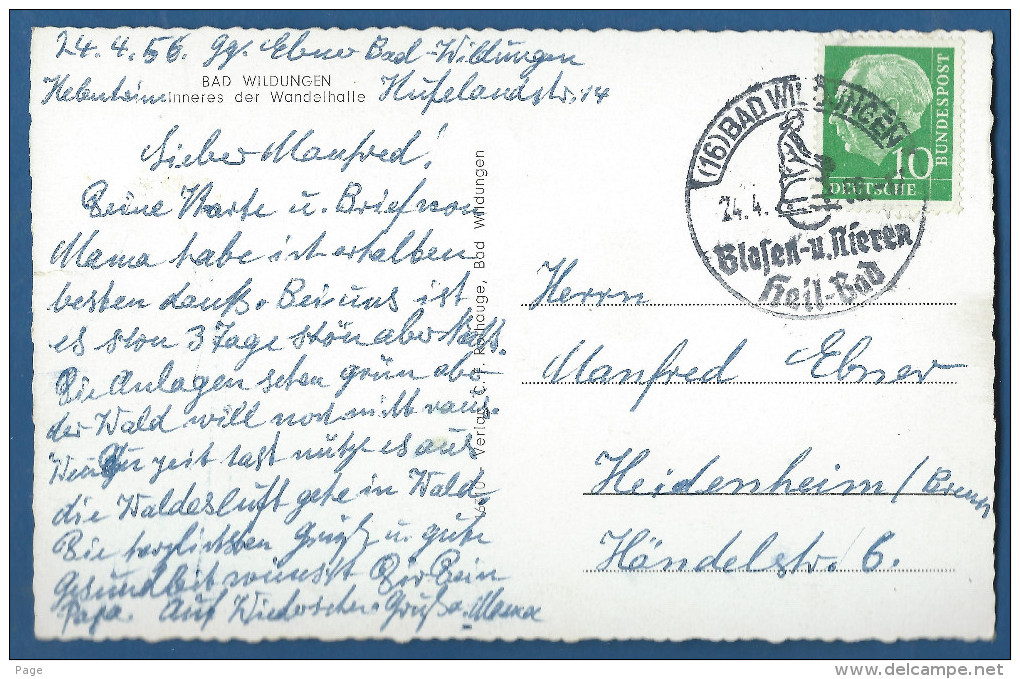 24.4.56. Gg. Ebner Bad-Wildungen
BAD WILDUNGEN
Inneres der Wandelhalle
Hufelandstr. 14
Lieber Manfred!
Deine Karte u. Brief von
Mama habe ich erhalten
besten dank. Bei uns ist
es schon 3 Tage schön aber kalt.
Die Anlagen sehen grün aber
der Wald will noch nicht raus.
Wenn Du zeit hast nütze es aus
die Waldesluft gehe in Wald.
Die herzlichsten Grüße u. gute
Gesundheit wünscht Dir Dein
Papa. Auf Wiedersehen. Gruß a. Mama
Verlag C. F. Rothauge, Bad Wildungen
(16) BAD WILDUNGEN
24.4.
Blasen-u. Nieren
Heil-Bad
10
DEUTSCHE
BUNDESPOST
Herrn
Manfred Ebner
Heidenheim/Brenz
Händelstr. 6.
Page